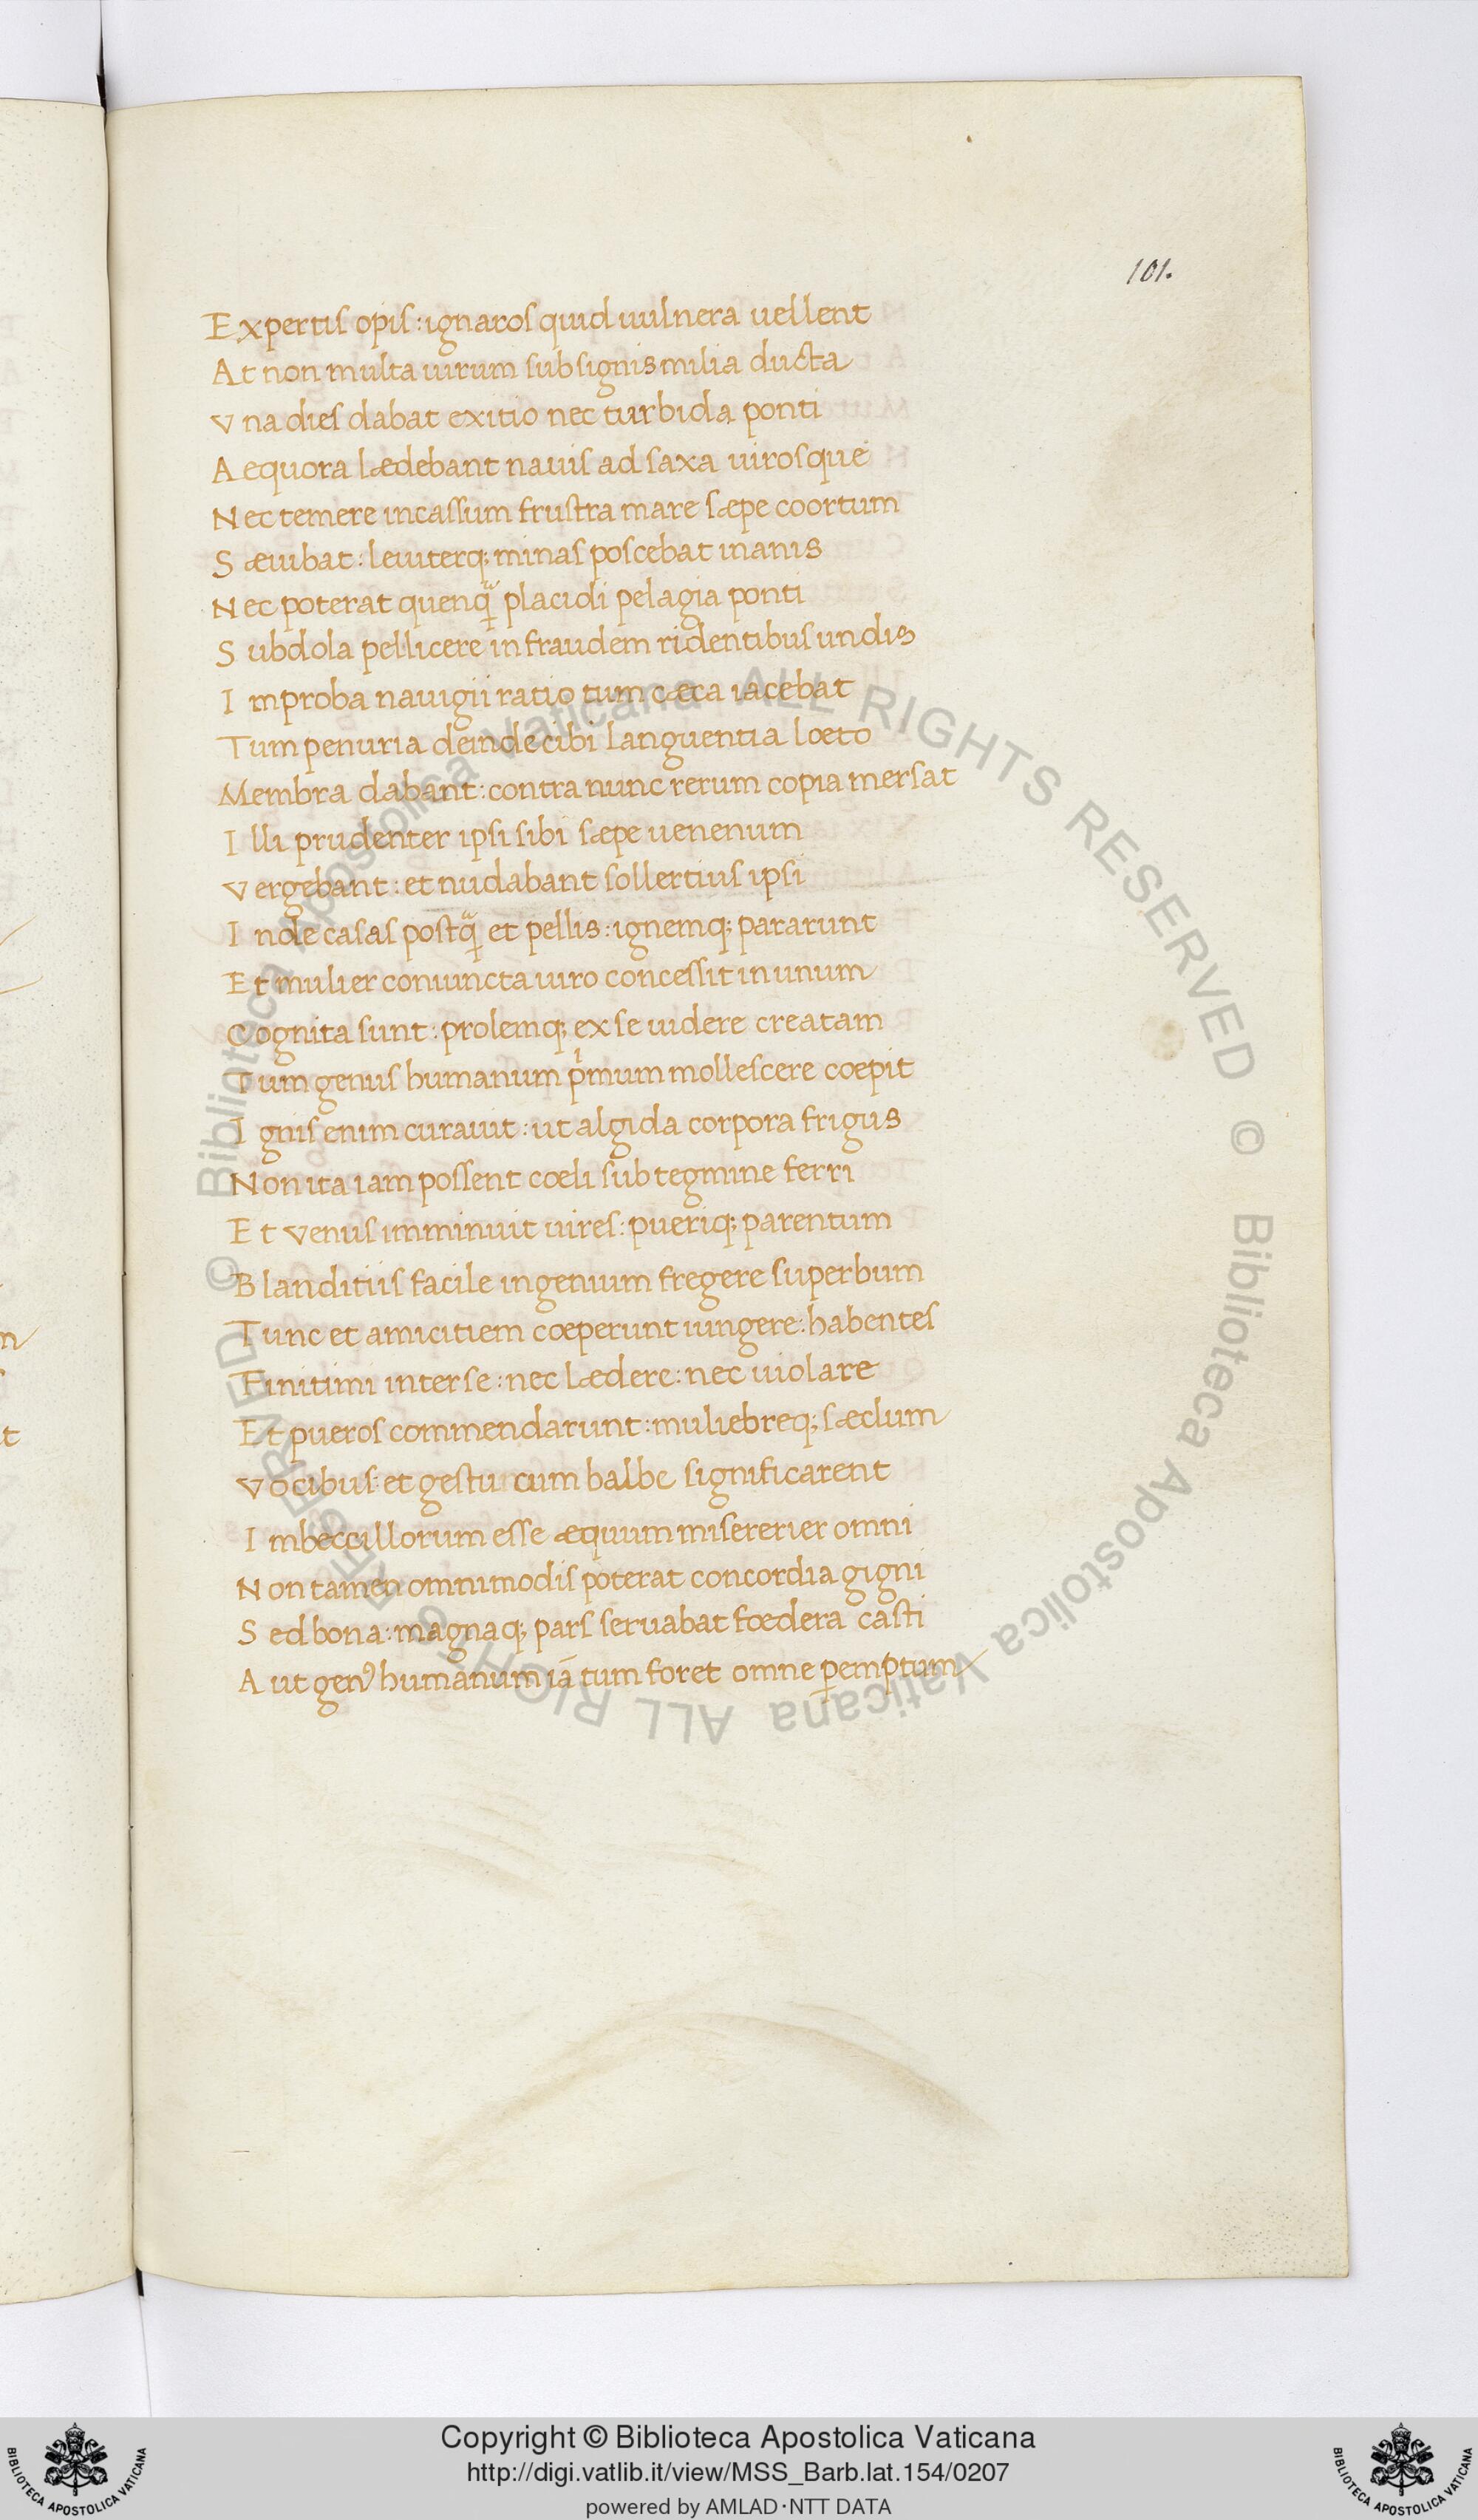 101.
Expertis opis: ignaros quid uulnera uellent
At non multa uirum sub signis milia ducta
Vna dies dabat exitio nec turbida ponti
Aequora lædebant nauis ad saxa uirosque
Nec temere incassum frustra mare sæpe coortum
Sæuibat: leuiterq; minas poscebat inanis
Nec poterat quenq̃ placidi pelagia ponti
Subdola pellicere in fraudem ridentibus undis
Improba nauigii ratio tum cæca iacebat
Tum penuria deinde cibi languentia loeto
Membra dabant: contra nunc rerum copia mersat
Illi prudenter ipsi sibi sæpe uenenum
Vergebant: et nudabant sollertius ipsi
Inde casas postq̃ et pellis: ignemq; pararunt
Et mulier coniuncta uiro concessit in unum
Cognita sunt: prolemq; ex se uidere creatam
Tum genus humanum pͥmum mollescere coepit
Ignis enim curauit: ut algida corpora frigus
Non ita iam possent cœli sub tegmine ferri
Et Venus imminuit uires: pueriq; parentum
Blanditiis facile ingenium fregere superbum
Tunc et amicitiem cœperunt iungere: habentes
Finitimi inter se: nec lædere: nec uiolare
Et pueros commendarunt: muliebreq; sæclum
Vocibus: et gestu cum balbe significarent
Imbeccillorum esse æquum misererier omni
Non tamen omnimodis poterat concordia gigni
Sed bona: magnaq; pars seruabat fœdera casti
Aut genꝰ humanum iā tum foret omne ꝑemptum
© Biblioteca Apostolica Vaticana ALL RIGHTS RESERVED © Biblioteca Apostolica Vaticana ALL RIGHTS RESERVED
Copyright © Biblioteca Apostolica Vaticana
http://digi.vatlib.it/view/MSS_Barb.lat.154/0207
powered by AMLAD·NTT DATA
BIBLIOTECA APOSTOLICA VATICANA
BIBLIOTECA APOSTOLICA VATICANA